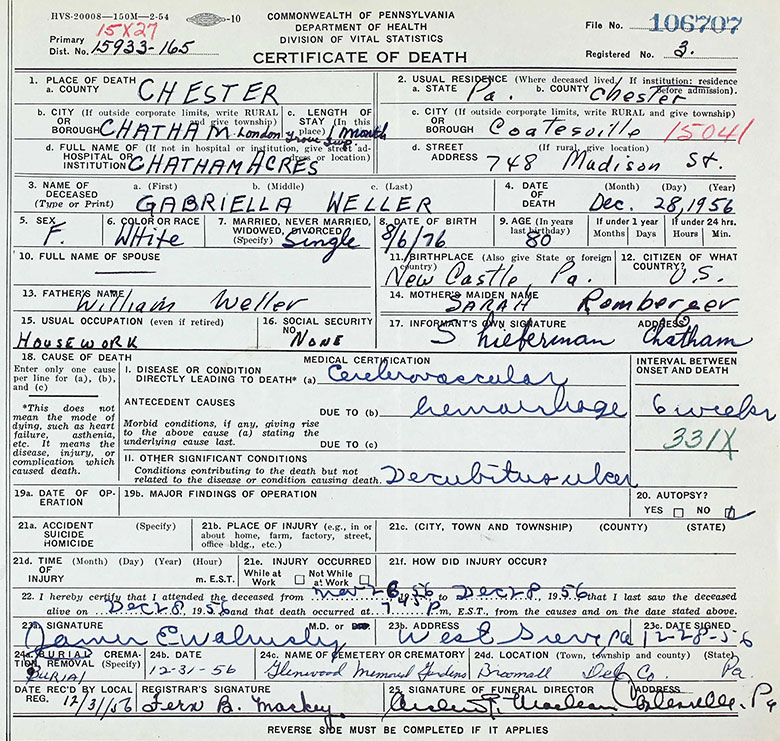 HVS-20008—150M—2-54 -10 COMMONWEALTH OF PENNSYLVANIA File No. 106707
15X27 DEPARTMENT OF HEALTH
Primary DIVISION OF VITAL STATISTICS
Dist. No. 15933-165 CERTIFICATE OF DEATH Registered No. 3.
1. PLACE OF DEATH 2. USUAL RESIDENCE (Where deceased lived. If institution: residence before admission).
a. COUNTY CHESTER a. STATE Pa. b. COUNTY Chester
b. CITY (If outside corporate limits, write RURAL and give township) OR BOROUGH CHATHAM London Grove Twp
c. LENGTH OF STAY (In this place) 1 Month
c. CITY (If outside corporate limits, write RURAL and give township) OR BOROUGH Coatesville 15041
d. FULL NAME OF (If not in hospital or institution, give street address or location) HOSPITAL OR INSTITUTION CHATHAM ACRES
d. STREET ADDRESS (If rural, give location) 748 Madison St.
3. NAME OF DECEASED (Type or Print) a. (First) b. (Middle) c. (Last)
GABRIELLA WELLER
4. DATE OF DEATH (Month) (Day) (Year)
Dec. 28, 1956
5. SEX F.
6. COLOR OR RACE White
7. MARRIED, NEVER MARRIED, WIDOWED, DIVORCED (Specify) Single
8. DATE OF BIRTH 8/6/76
9. AGE (In years last birthday) 80
If under 1 year Months Days
If under 24 hrs. Hours Min.
10. FULL NAME OF SPOUSE
11. BIRTHPLACE (Also give State or foreign country) New Castle, Pa.
12. CITIZEN OF WHAT COUNTRY? U.S.
13. FATHER'S NAME William Weller
14. MOTHER'S MAIDEN NAME SARAH Romberger
15. USUAL OCCUPATION (even if retired) HOUSEWORK
16. SOCIAL SECURITY NO. NONE
17. INFORMANT'S OWN SIGNATURE ADDRESS
S Lieberman Chatham
18. CAUSE OF DEATH
Enter only one cause per line for (a), (b), and (c)
*This does not mean the mode of dying, such as heart failure, asthenia, etc. It means the disease, injury, or complication which caused death.
MEDICAL CERTIFICATION
INTERVAL BETWEEN ONSET AND DEATH
I. DISEASE OR CONDITION DIRECTLY LEADING TO DEATH* (a) Cerebrovascular
ANTECEDENT CAUSES
DUE TO (b) hemorrhage 6 weeks
Morbid conditions, if any, giving rise to the above cause (a) stating the underlying cause last.
DUE TO (c) 331X
II. OTHER SIGNIFICANT CONDITIONS
Conditions contributing to the death but not related to the disease or condition causing death. Decubitus ulcer
19a. DATE OF OPERATION
19b. MAJOR FINDINGS OF OPERATION
20. AUTOPSY?
YES NO
21a. ACCIDENT SUICIDE HOMICIDE (Specify)
21b. PLACE OF INJURY (e.g., in or about home, farm, factory, street, office bldg., etc.)
21c. (CITY, TOWN AND TOWNSHIP) (COUNTY) (STATE)
21d. TIME OF INJURY (Month) (Day) (Year) (Hour) m. E.S.T.
21e. INJURY OCCURRED While at Work Not While at Work
21f. HOW DID INJURY OCCUR?
22. I hereby certify that I attended the deceased from Nov 26, 1956 to Dec 28, 1956 that I last saw the deceased
alive on Dec 28, 1956 and that death occurred at 7:45 P m., E.S.T., from the causes and on the date stated above.
23a. SIGNATURE M.D. or D.O. 23b. ADDRESS 23c. DATE SIGNED
James E Walmsley West Grove Pa 12-28-56
24a. BURIAL, CREMATION, REMOVAL (Specify) BURIAL
24b. DATE 12-31-56
24c. NAME OF CEMETERY OR CREMATORY Glenwood Memorial Gardens
24d. LOCATION (Town, township and county) (State) Broomall Del Co. Pa.
DATE REC'D BY LOCAL REG. 12/31/56
REGISTRAR'S SIGNATURE Fern B. Mackey
25. SIGNATURE OF FUNERAL DIRECTOR ADDRESS
Maclean Coatesville, Pa
REVERSE SIDE MUST BE COMPLETED IF IT APPLIES